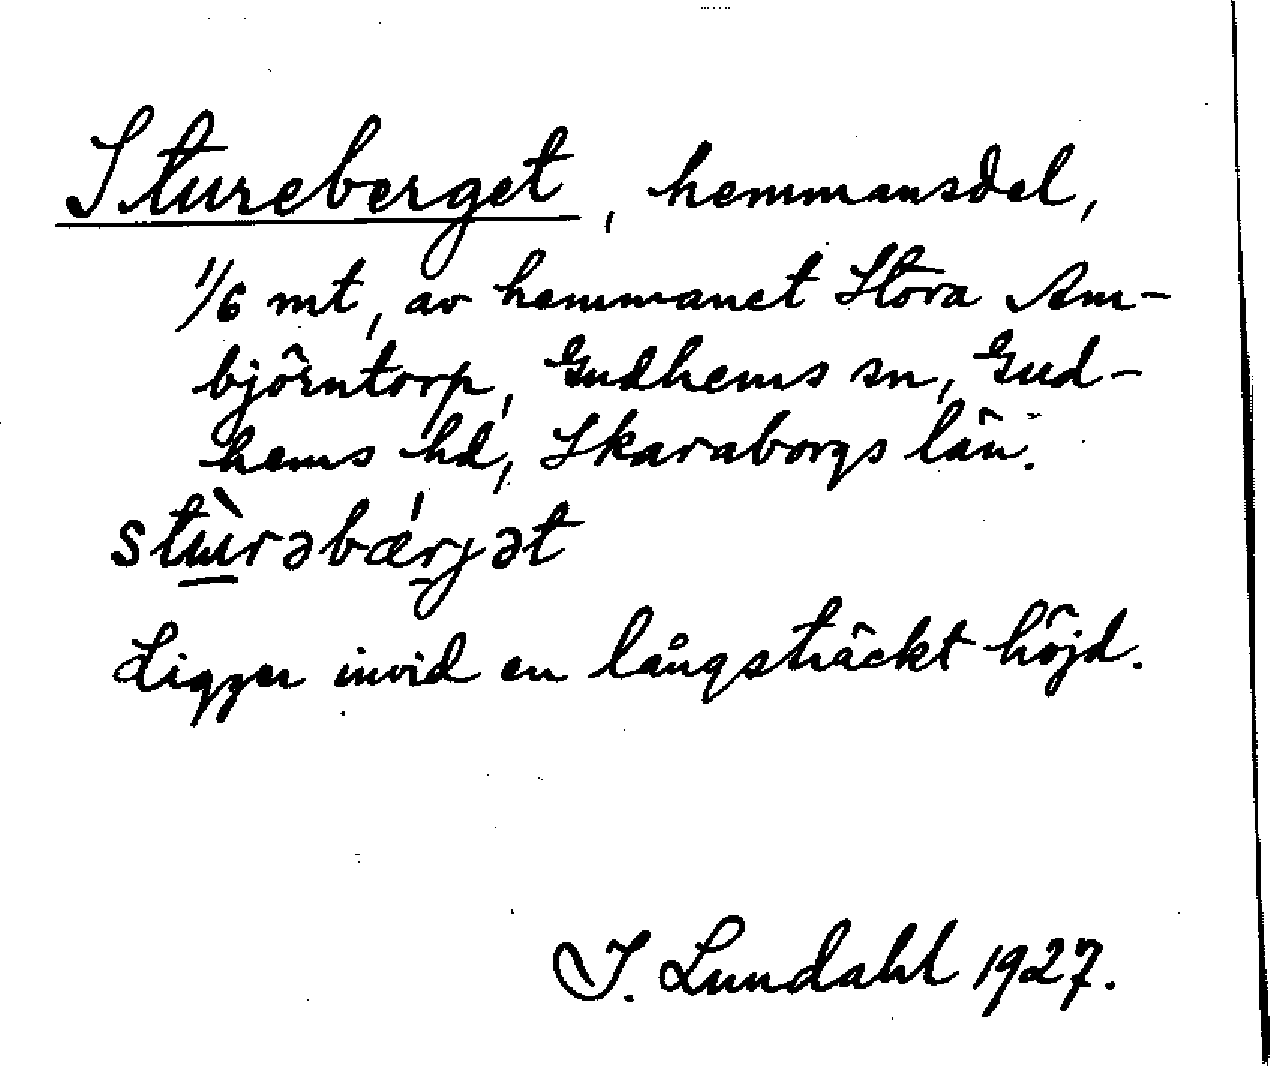 Stureberget, hemmansdel,
1/6 mt, av hemmanet Stora Am-
björntorp, Gudhems sn, Gud-
hems hd, Skaraborgs län.
stùrəbǽrjət
Ligger invid en långsträckt höjd.
I. Lundahl 1927.